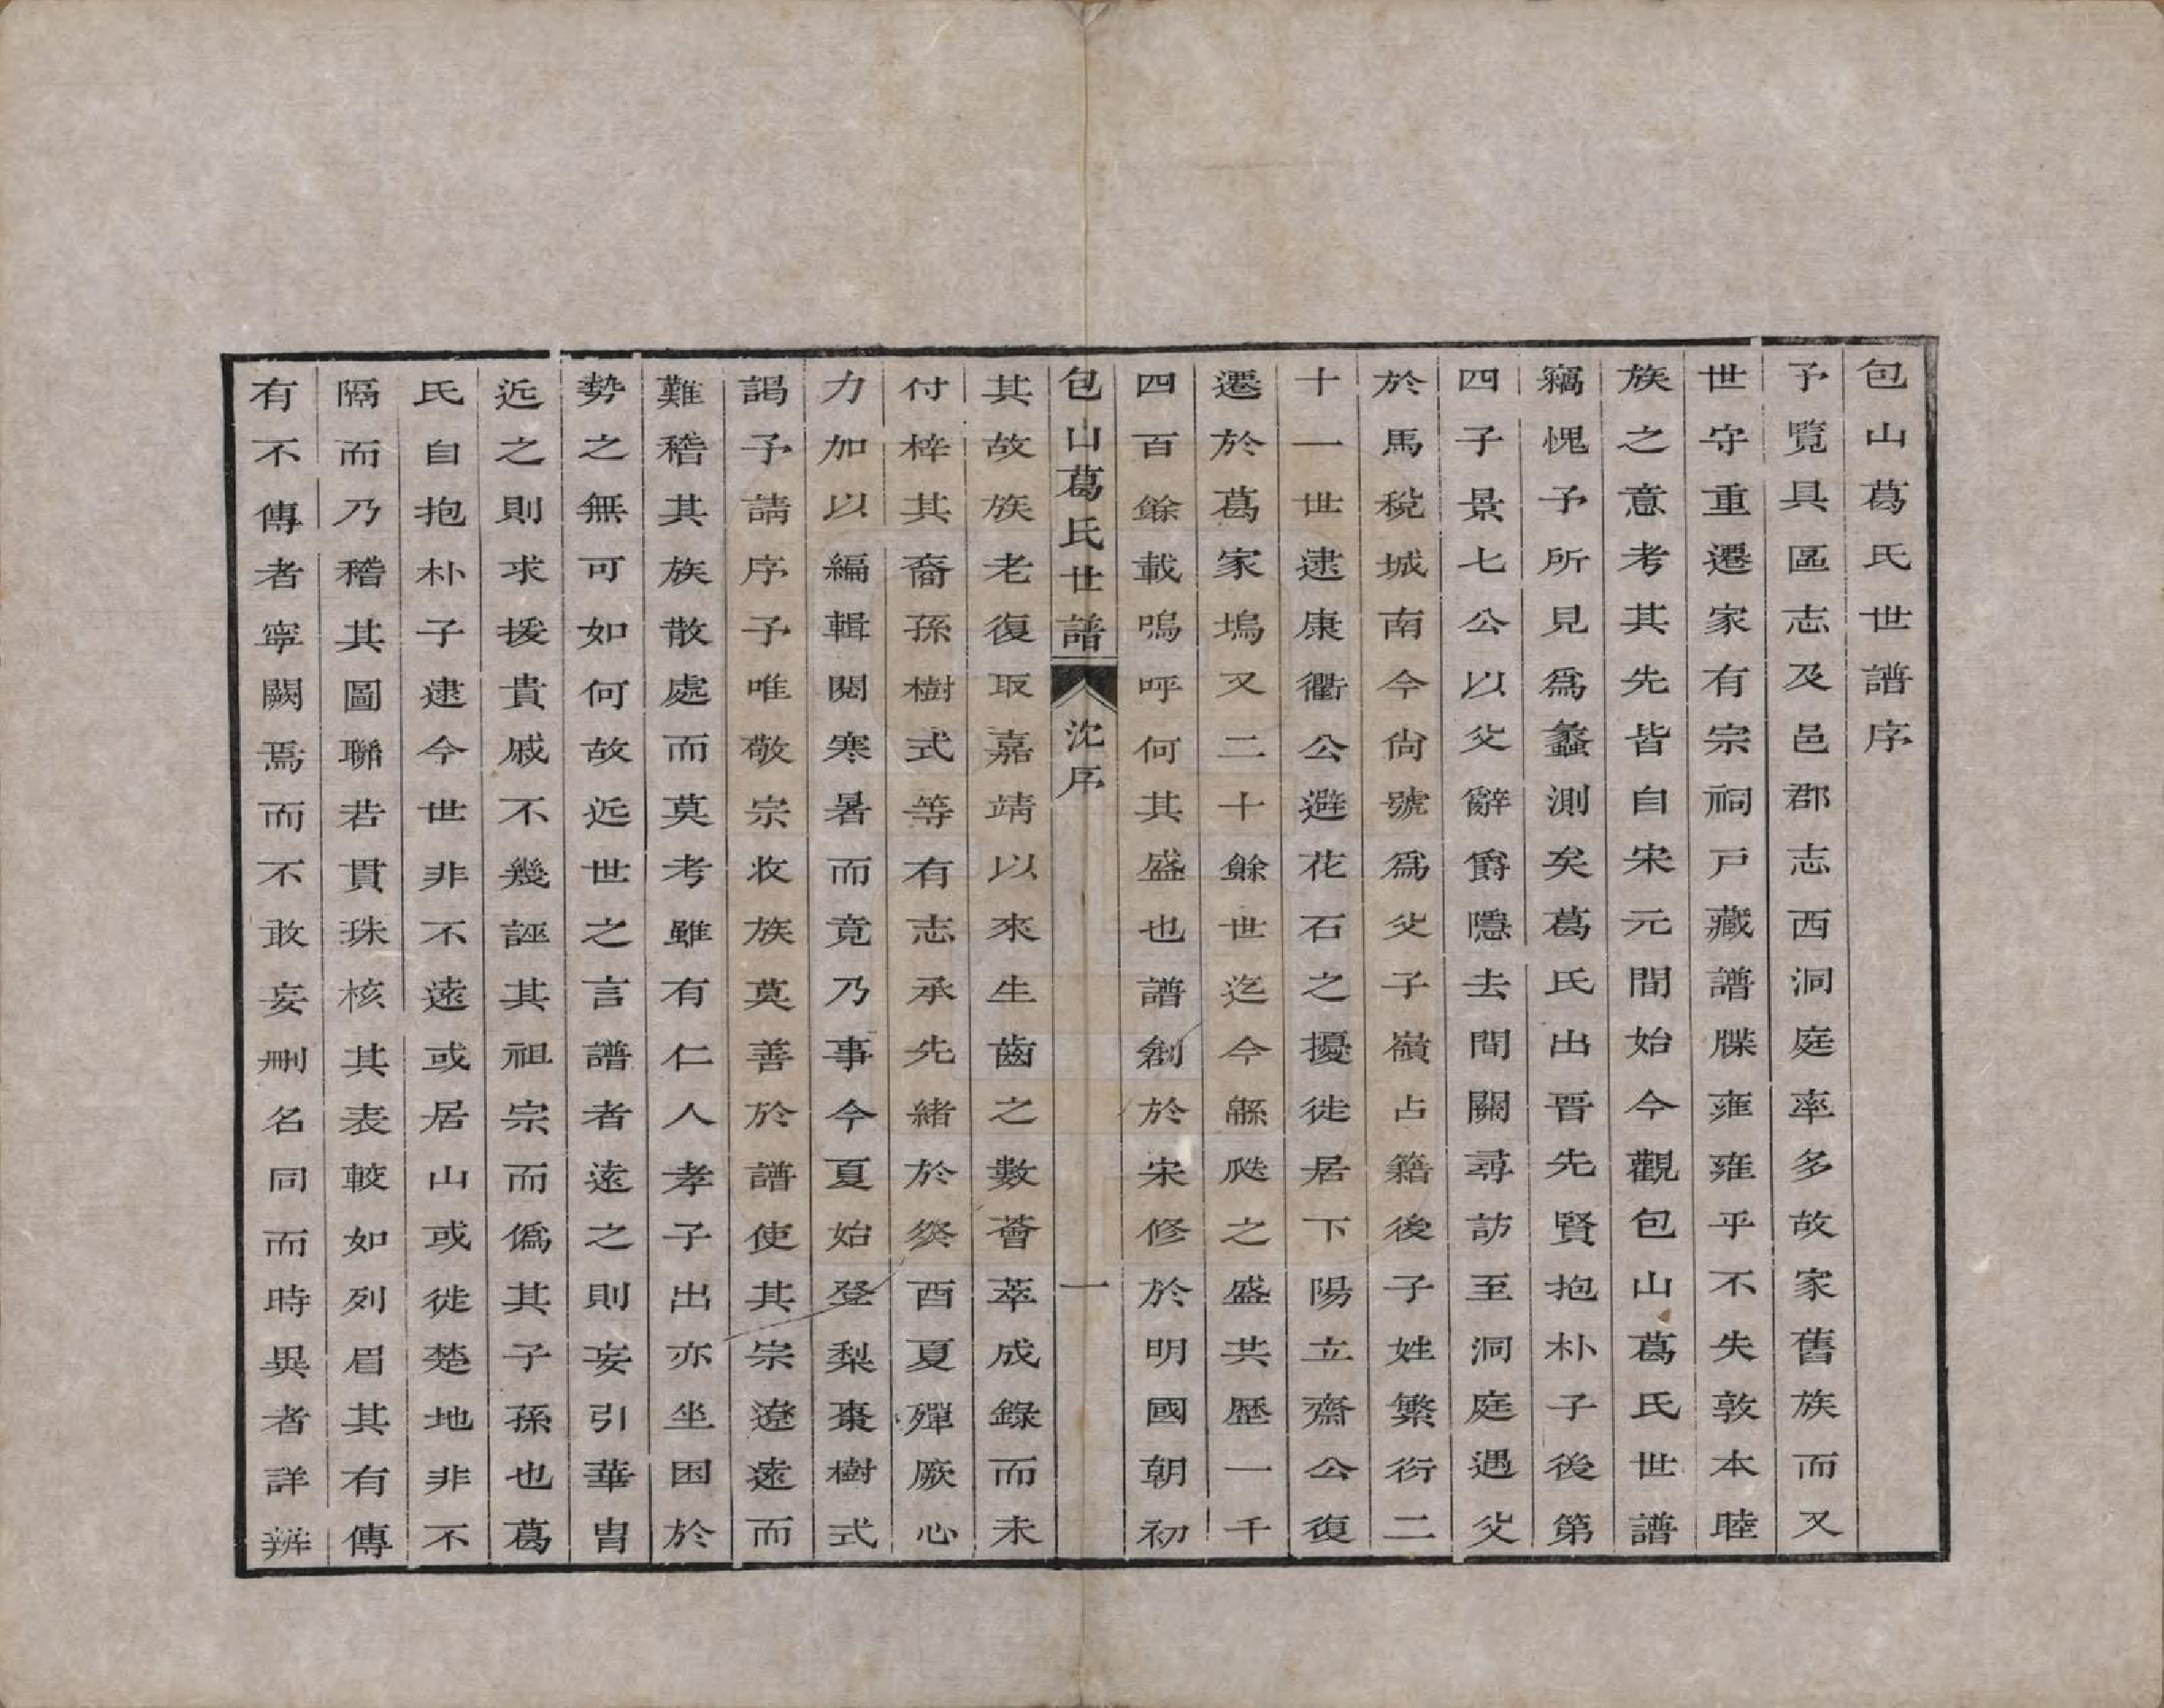 包山葛氏世譜序
予覽具區志及邑郡志西洞庭率多故家舊族而又
世守重遷家有宗祠戸藏譜牒雍雍乎不失敦本睦
族之意考其先皆自宋元間始今觀包山葛氏世譜
竊愧予所見爲蠡測矣葛氏出晉先賢抱朴子後第
四子景七公以父辭爵隱去間關尋訪至洞庭遇父
於馬稅城南今尙號爲父子嶺占籍後子姓繁衍二
十一世逮康衢公避花石之擾徙居下陽立齋公復
遷於葛家塢又二十餘世迄今緜瓞之盛共歷一千
四百餘載嗚呼何其盛也譜創於宋修於明國朝初
包山葛氏世譜 沈序 一
其故族老復取嘉靖以來生齒之數薈萃成錄而未
付梓其裔孫樹式等有志承先緒於癸酉夏殫厥心
力加以編輯閱寒暑而竟乃事今夏始登梨棗樹式
謁予請序予唯敬宗收族莫善於譜使其宗遼遠而
難稽其族散處而莫考雖有仁人孝子出亦坐困於
勢之無可如何故近世之言譜者遠之則妄引華胄
近之則求援貴戚不幾誣其祖宗而僞其子孫也葛
氏自抱朴子逮今世非不遠或居山或徙楚地非不
隔而乃稽其圖聯若貫珠核其表較如列眉其有傳
有不傳者寧闕焉而不敢妄刪名同而時異者詳辨